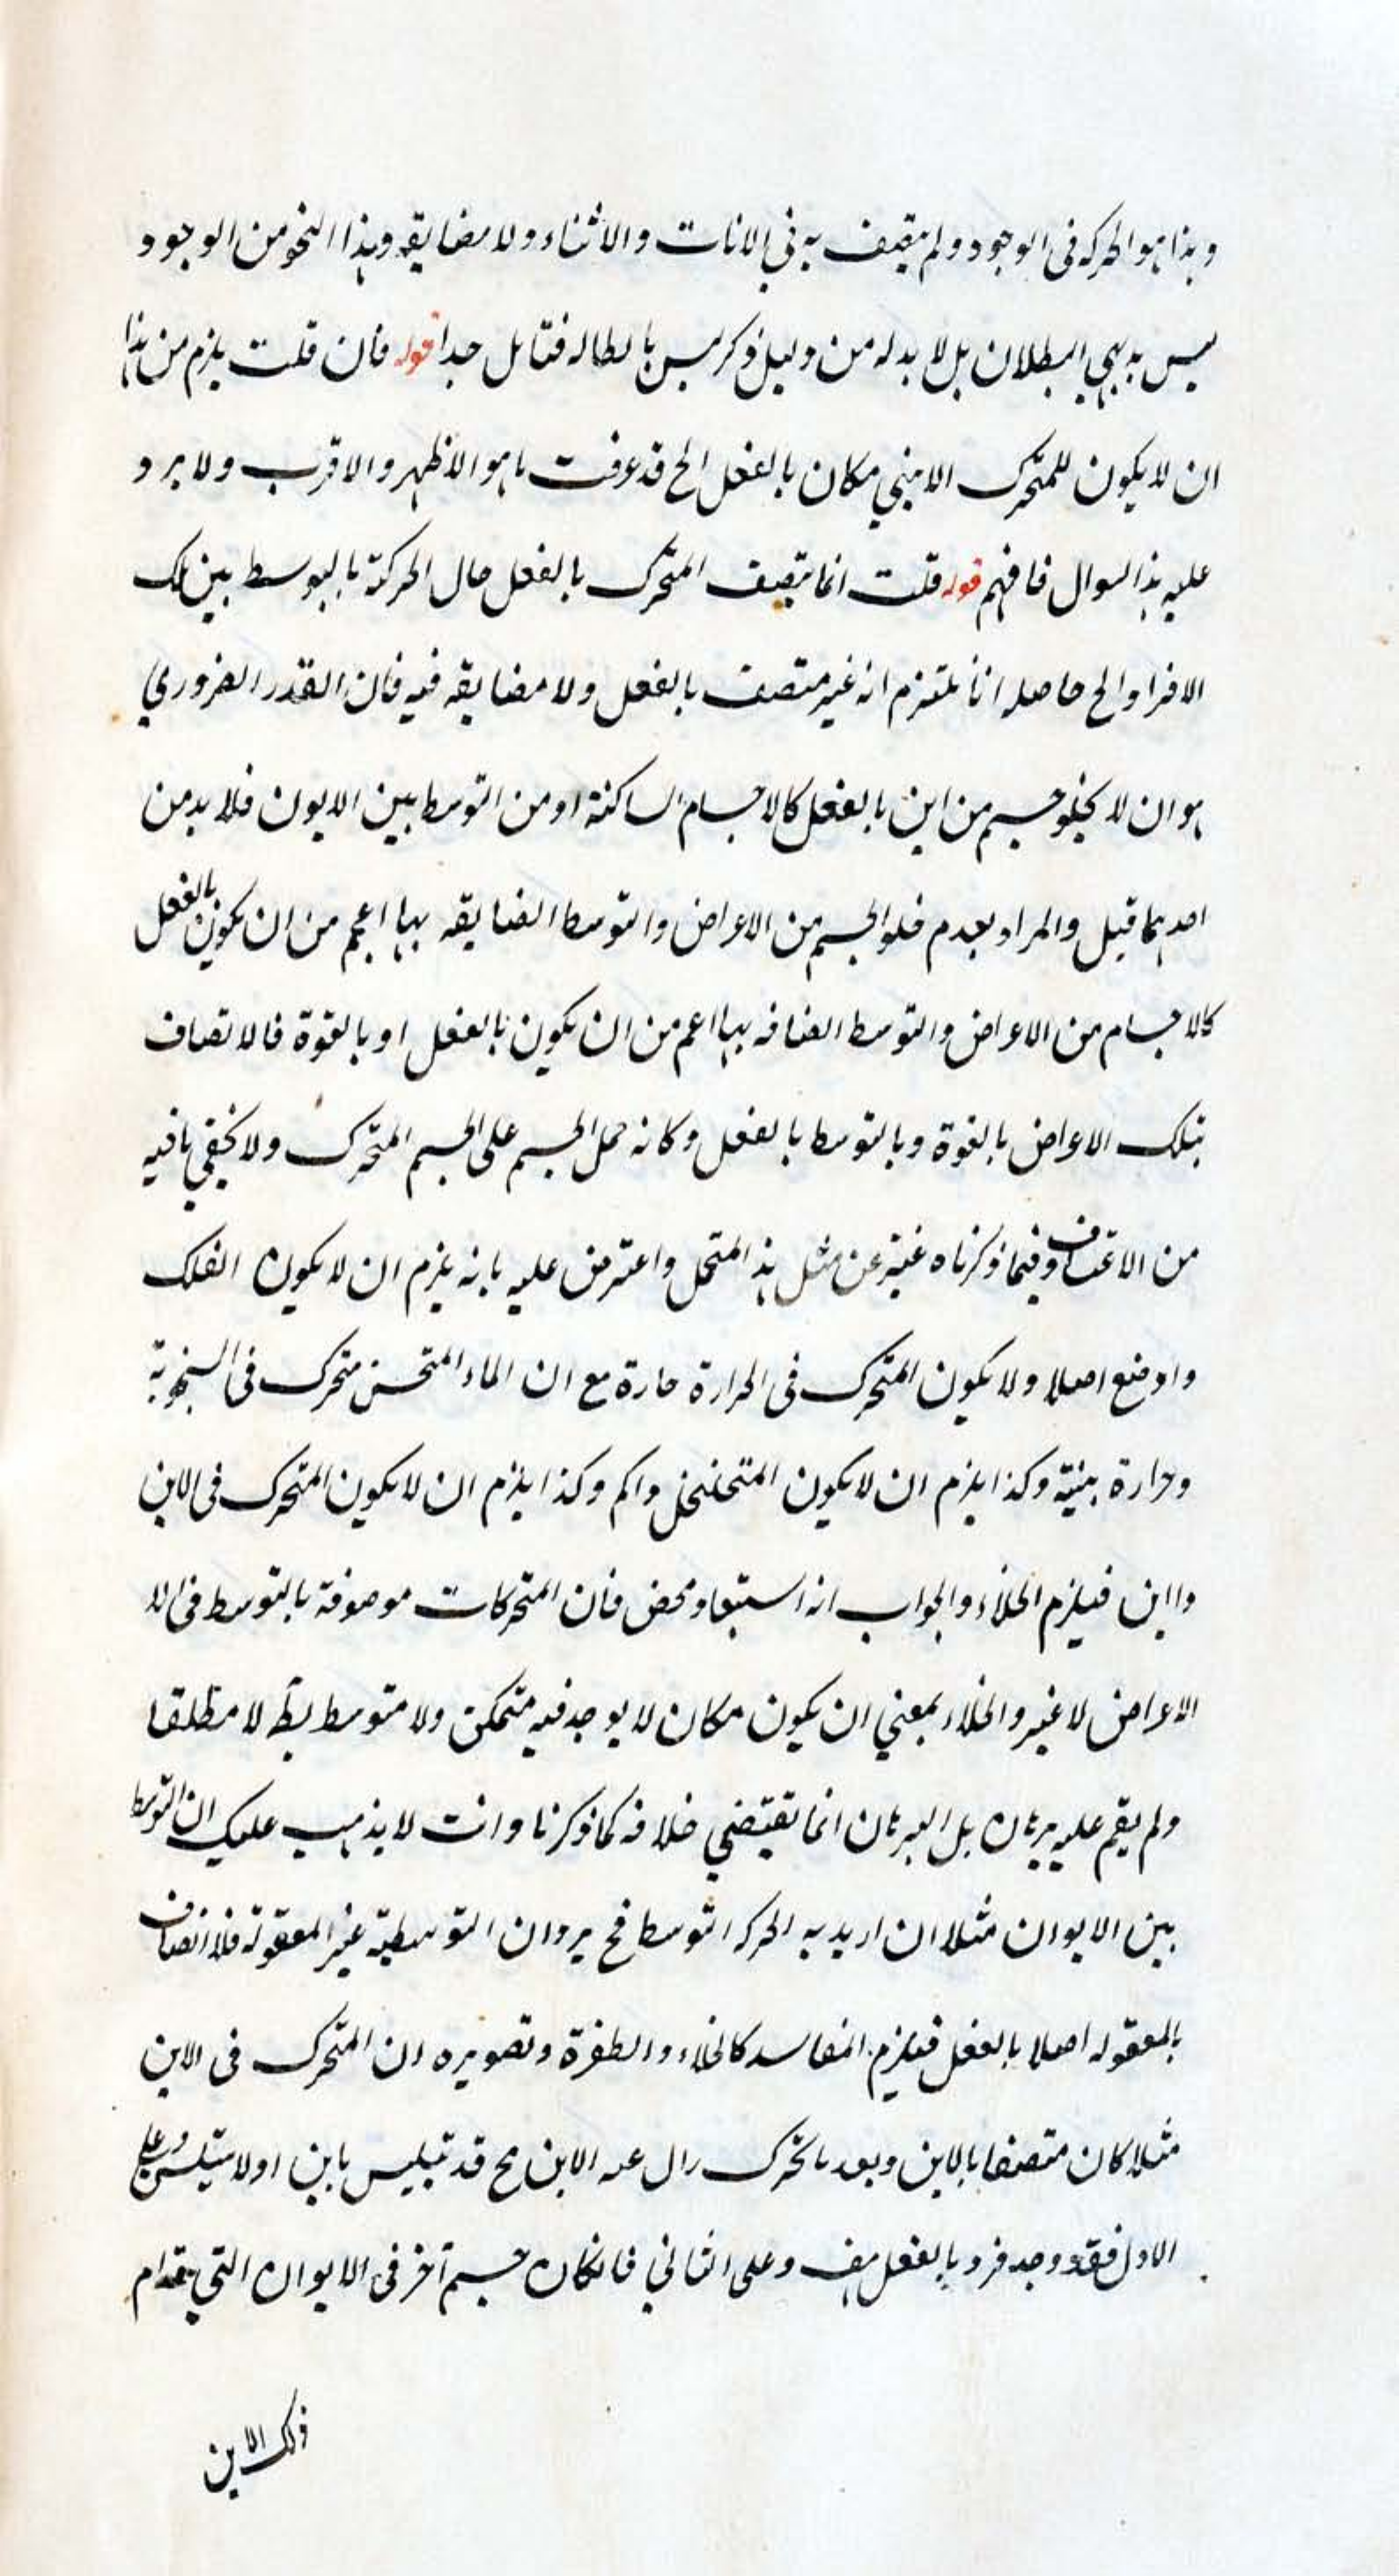 وهذا هو الحركه فى الوجود ولم يتصف به في الانات والاثناء ولا مضايقه وهذا النحو من الوجود
ليس بديهي البطلان بل لا بد له من دليل وذكر ليس بابطاله فتأمل جدا قوله فان قلت يلزم من هذا
ان لا يكون للمتحرك الايني مكان بالفعل الخ قد عرفت ما هو الاظهر والاقرب ولا يرد
عليه هذا السوال فافهم قوله قلت انما يتصف المتحرك بالفعل حال الحركة بالتوسط بين تلك
الافراد الخ حاصله انا نلتزم انه غير متصف بالفعل ولا مضايقه فيه فان القدر الضروري
هو ان لا يخلو جسم من اين بالفعل كالاجسام الساكنة او من التوسط بين الايون فلا بد من
احدهما قيل والمراد بعدم خلو الجسم من الاعراض والتوسط المضايقه بها اعم من ان يكون بالفعل
كالاجسام من الاعراض والتوسط المضافه بها اعم من ان يكون بالفعل او بالقوة فالاتصاف
بتلك الاعراض بالقوة وبالتوسط بالفعل وكانه حمل الجسم على الجسم المتحرك ولا يخفي ما فيه
من الاعتساف وفيما ذكرناه غنية عن مثل هذا التمحل واعترض عليه بانه يلزم ان لا يكون الفلك
ذا وضع اصلا ولا يكون المتحرك فى الحرارة حارة مع ان الماء المتسخن متحرك فى السخونة
وحرارة بينة وكذا يلزم ان لا يكون المتخلخل ذا كم وكذا يلزم ان لا يكون المتحرك فى الاين
ذا اين فيلزم الخلاء والجواب انه استبعاد محض فان المتحركات موصوفة بالتوسط فى الا
الاعراض لا غير والخلاء بمعني ان يكون مكان لا يوجد فيه متمكن ولا متوسط بط لا مطلقا
ولم يقم عليه برهان بل البرهان انما تقتضي خلافه كما ذكرنا وانت لا يذهب عليك ان التوسط
بين الايون مثلا ان اريد به الحركه التوسط فح يرد ان التوسطية غير المعقولة فلا اتصاف
بالمعقوله اصلا بالفعل فيلزم المفاسد كالخلاء والطفرة وتصويره ان المتحرك فى الاين
مثلا كان متصفا بالاين وبعد ما تحرك زال عنه الاين فح قد تلبس باين اولا يتلبس وعلى
الاول فقد وجد فرد بالفعل هف وعلى الثاني فانكان جسم آخر فى الايون التي قدام
ذلك الاين